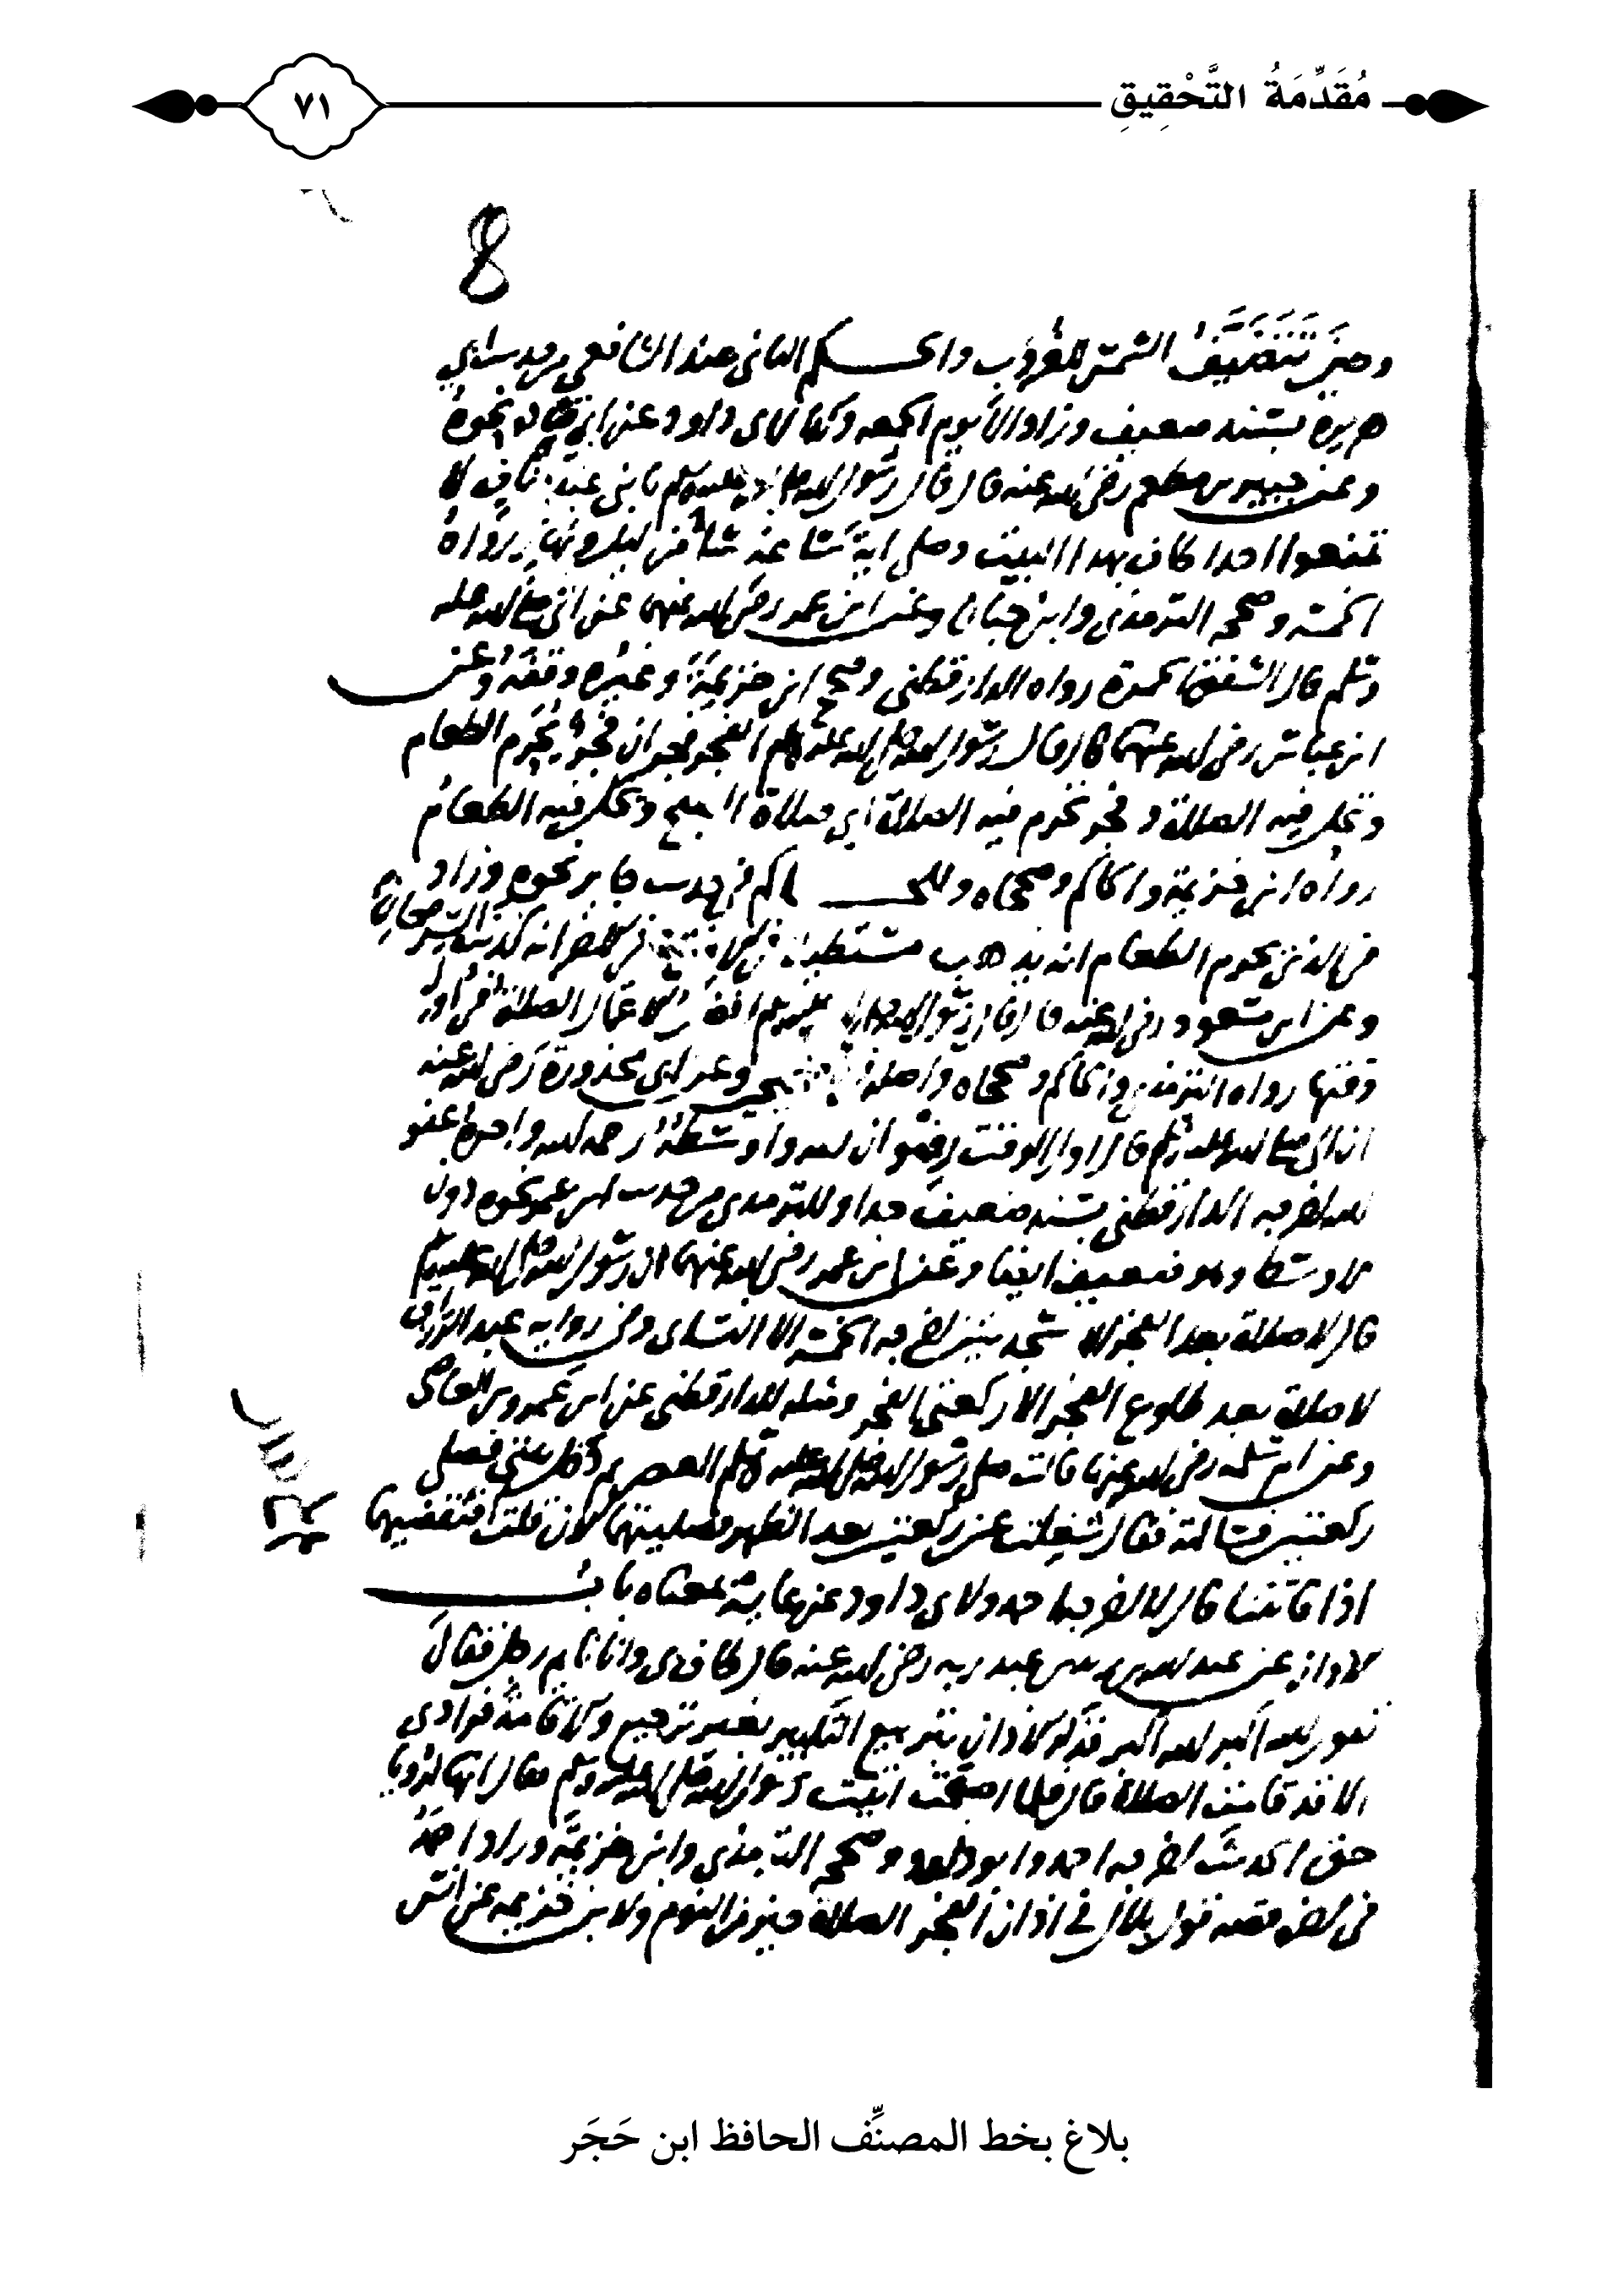 مُقَدِّمَةُ التَّحْقِيقِ
٧١
8
وحين تتضيف الشمس للغروب والحكم الثاني عند الشافعي من حديث ابي
هريرة بسند ضعيف وزاد الا يوم الجمعه وكذا لابي داود عن ابي قتادة نحوه
وعن جبير بن مطعم رضي الله عنه قال قال رسول الله صلى الله عليه وسلم يا بني عبد مناف لا
تمنعوا احدا طاف بهذا البيت وصلى اية ساعة شا من ليل ونهار رواه
الخمسة وصححه الترمذي وابن حبان وعن ابن عمر رضي الله عنهما عن النبي صلى الله عليه
وسلم قال الشفق الحمرة رواه الدارقطني وصحح ابن خزيمة وغيره وقفه وعن
ابن عباس رضي الله عنهما قال قال رسول الله صلى الله عليه وسلم الفجر فجران فجر يحرم الطعام
وتحل فيه الصلاة وفجر تحرم فيه الصلاة اي صلاة الصبح ويحل فيه الطعام
رواه ابن خزيمة والحاكم وصححاه وللحاكم من حديث جابر نحوه وزاد
في الذي يحرم الطعام انه يذهب مستطيلا في الافق وفي الاخر انه كذنب السرحان
وعن ابن مسعود رضي الله عنه قال قال رسول الله صلى الله عليه وسلم افضل الاعمال الصلاة في اول
وقتها رواه الترمذي والحاكم وصححاه واصله في الصحيحين وعن ابي محذورة رضي الله عنه
ان النبي صلى الله عليه وسلم قال اول الوقت رضوان الله واوسطه رحمة الله واخره عفو
الله اخرجه الدارقطني بسند ضعيف جدا وللترمذي من حديث ابن عمر نحوه دون
الاوسط وهو ضعيف ايضا وعن ابن عمر رضي الله عنهما ان رسول الله صلى الله عليه وسلم
قال لا صلاة بعد الفجر الا سجدتين اخرجه الخمسة الا النسائي وفي رواية عبد الرزاق
لا صلاة بعد طلوع الفجر الا ركعتي الفجر ومثله للدارقطني عن ابن عمرو بن العاصي
وعن ام سلمة رضي الله عنها قالت صلى رسول الله صلى الله عليه وسلم العصر ثم دخل بيتي فصلى
ركعتين فسالته فقال شغلت عن ركعتين بعد الظهر فصليتهما الان قلت افنقضيهما
اذا فاتتنا قال لا اخرجه احمد ولابي داود عن عايشة بمعناه باب
الاذان عن عبد الله بن زيد بن عبد ربه رضي الله عنه قال طاف بي وانا نايم رجل فقال
تقول الله اكبر الله اكبر فذكر الاذان بتربيع التكبير بغير ترجيع والاقامة فرادى
الا قد قامت الصلاة قال فلما اصبحت اتيت رسول الله صلى الله عليه وسلم فقال انها لرؤيا
حق الحديث اخرجه احمد وابو داود وصححه الترمذي وابن خزيمة وزاد احمد
في اخره قصة قول بلال في اذان الفجر الصلاة خير من النوم ولابن خزيمة عن انس
بلاغ بخط المصنِّف الحافظ ابن حَجَر